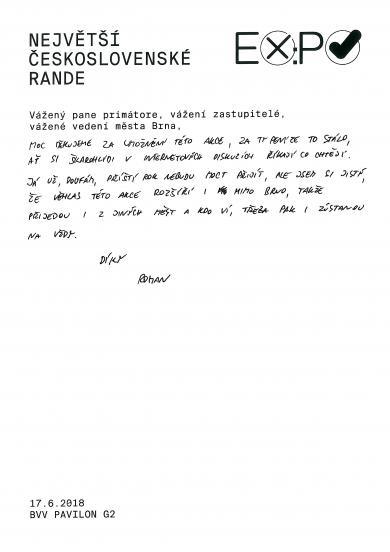 NEJVĚTŠÍ
ČESKOSLOVENSKÉ
RANDE
EXPO
Vážený pane primátore, vážení zastupitelé,
vážené vedení města Brna,
MOC DĚKUJEME ZA UMOŽNĚNÍ TÉTO AKCE, ZA TY PENÍZE TO STÁLO,
AŤ SI ŠKAROHLÍDI V INTERNETOVÝCH DISKUZÍCH ŘÍKAJÍ CO CHTĚJÍ.
JÁ UŽ, DOUFÁM, PŘÍŠTÍ ROK NEBUDU MOCT PŘIJÍT, ALE JSEM SI JISTÝ,
ŽE VĚHLAS TÉTO AKCE ROZŠÍŘÍ I MIMO BRNO, TAKŽE
PŘIJEDOU I Z JINÝCH MĚST A KDO VÍ, TŘEBA PAK I ZŮSTANOU
NA VŽDY.
DÍKY
ROMAN
17.6.2018
BVV PAVILON G2